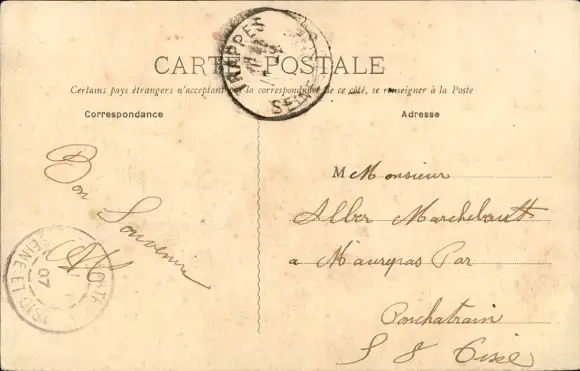 CARTE POSTALE
TRAPPES
SEINE
Certains pays étrangers n'acceptant pas la correspondance de ce côté, se renseigner à la Poste
Correspondance
Adresse
Bon Souvenir
M Monsieur
Alber Marcheboult
a Maurepas Par
Ponchatrain
S & Oise
SEINE ET
07